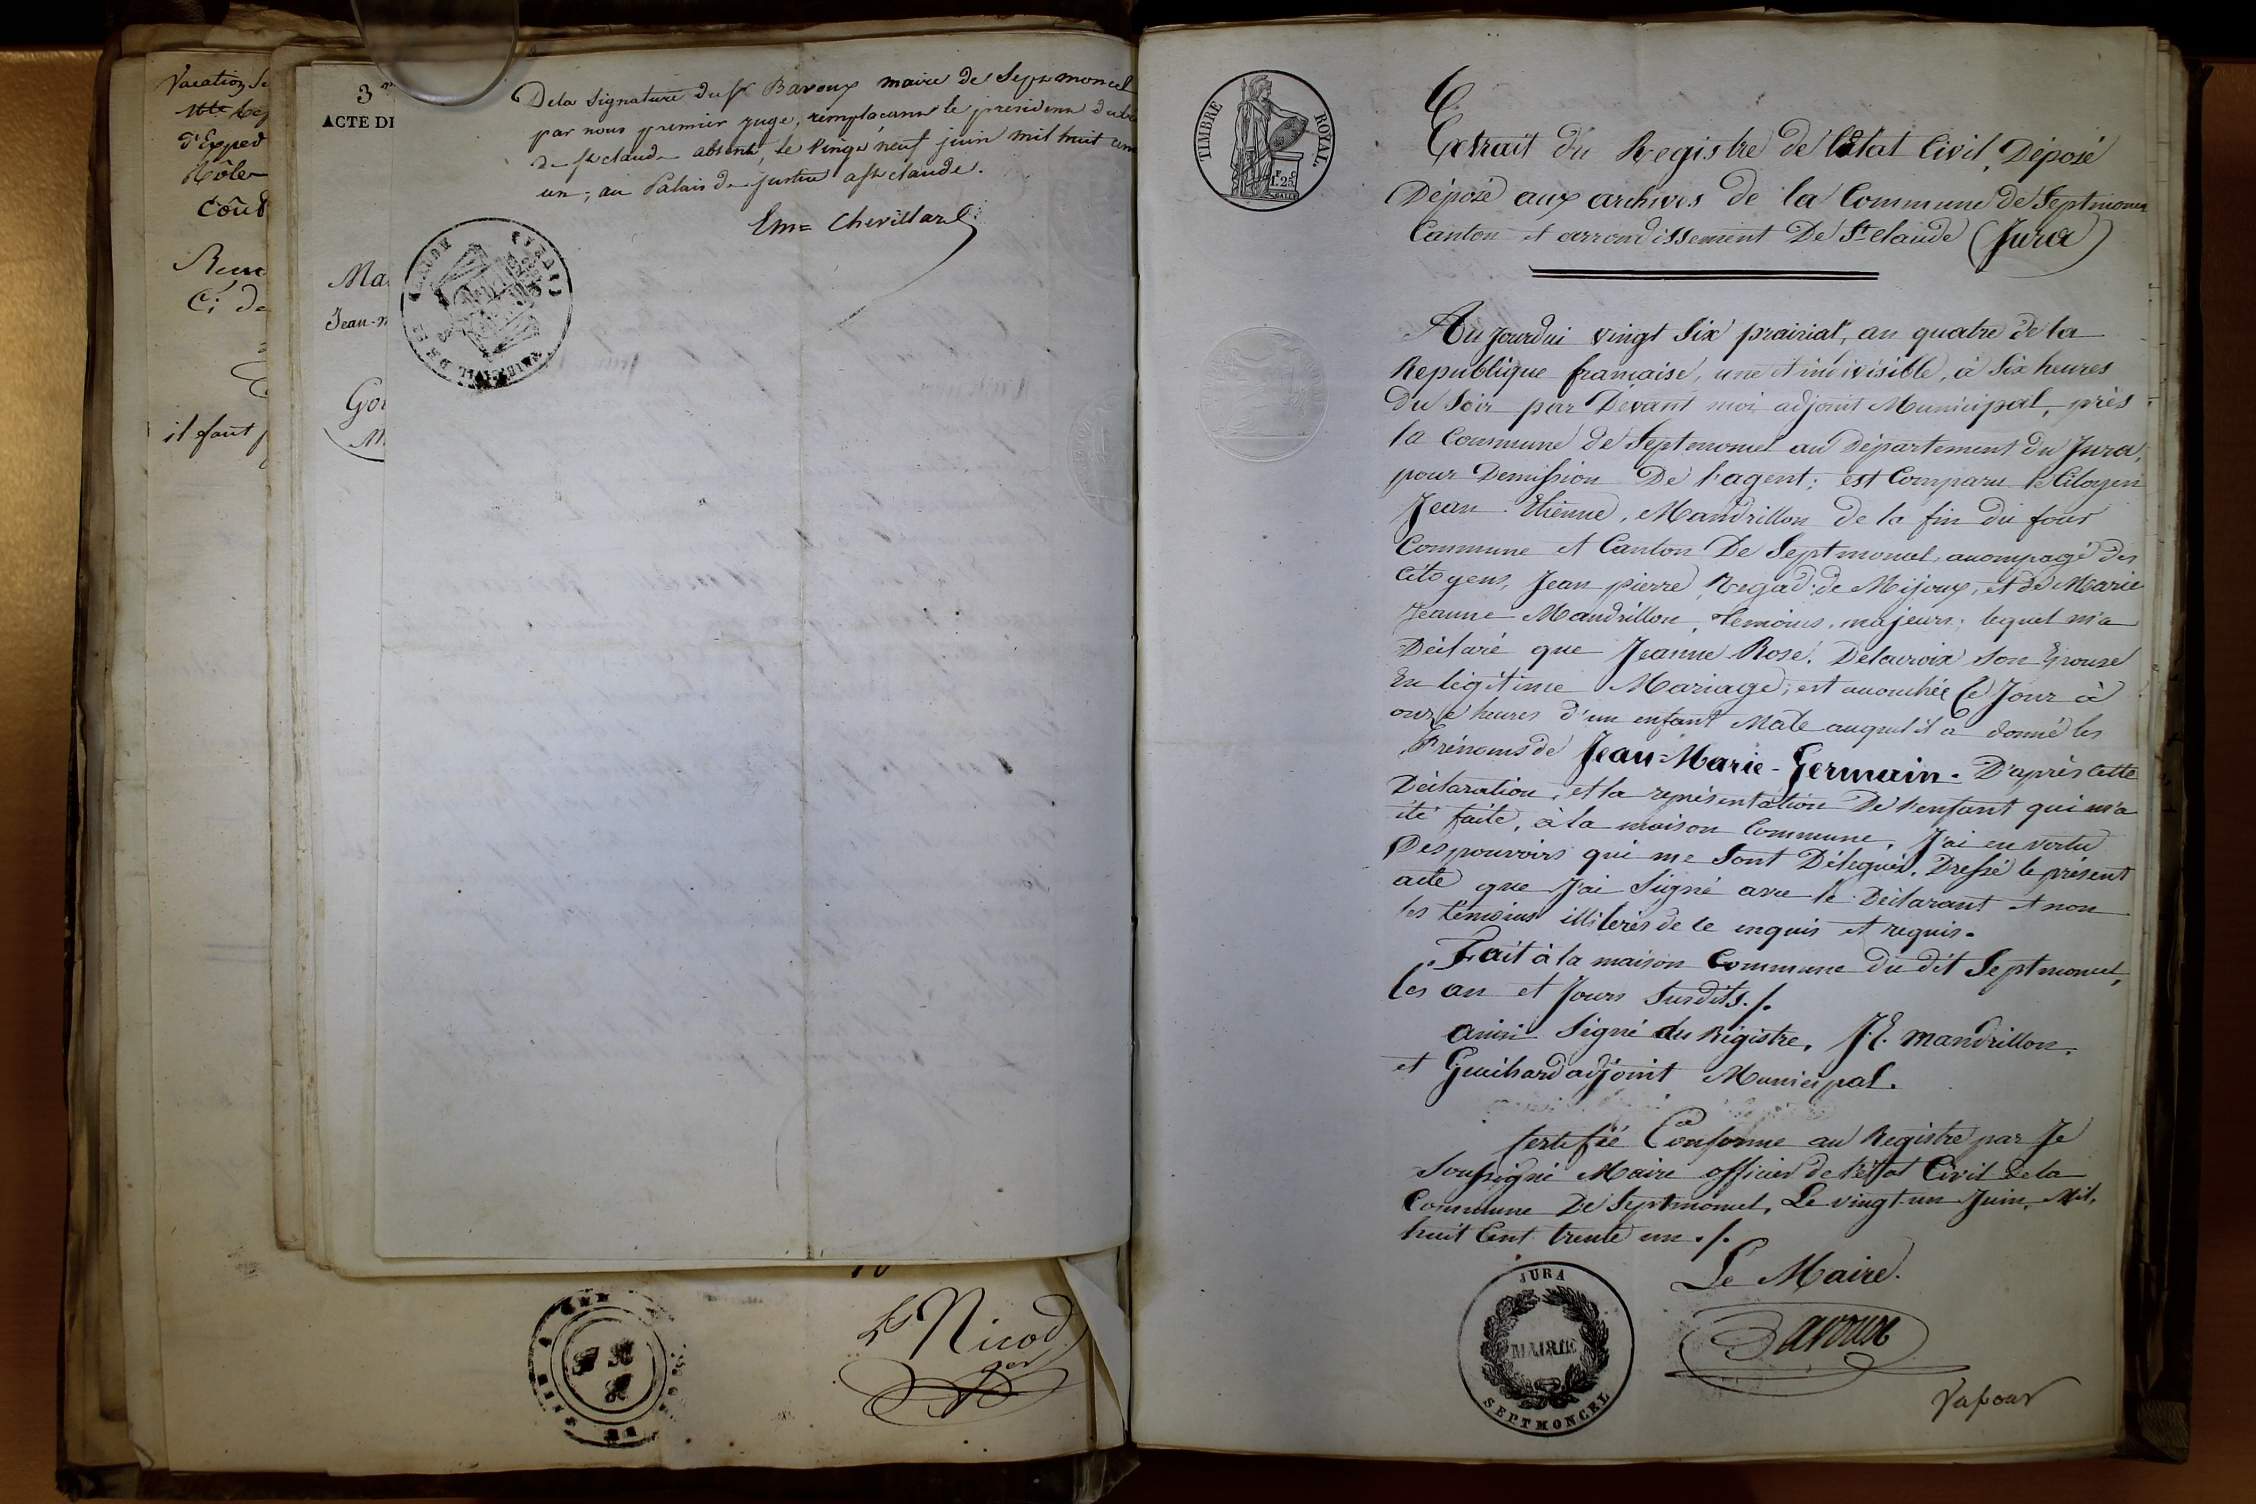 Vacation
d'Exped
Rôle
Coût
Ci de
il faut
3
ACTE DE
Ma
Jean-
De la signature du Sr Bavoux maire de Septmoncel
par nous premier juge, remplaçant le président du
de St claude absent, le vingt neuf juin mil huit cent
un; au Palais de justice à St claude.
Em= Chevillard
CLAUDE (JURA)
Nicod
TIMBRE ROYAL
1.25
Extrait du Registre de l'état Civil, Déposé
Déposé aux archives de la Commune de Septmoncel
Canton et arrondissement De St claude (Jura)
Aujourdui vingt six prairial, an quatre de la
Republique française, une et indivisible, à six heures
du soir par Devant moi adjoint Municipal, près
la Commune de Septmoncel au Département du Jura,
pour Demission De l'agent; est Comparu le Citoyen
Jean Etienne, Mandrillon de la fin du four
Commune et Canton De Septmoncel, acompagé des
Citoyens, Jean pierre Regad de Mijoux, et de Marie
Jeanne Mandrillon, temoins, majeurs; lequel m'a
Déclaré que Jeanne Rose Delacroix son Epouse
En légitime Mariage; est acouchée Ce Jour à
onze heures d'un enfant Male auquel il a donné les
Prénoms de Jean-Marie-Germain. D'après cette
Déclaration, et la représentation De l'enfant qui m'a
été faite, à la maison Commune, J'ai en vertu
Des pouvoirs qui me sont Délegués, Dressé le présent
acte que J'ai Signé avec le Déclarant et non
les témoins illiterés de ce enquis et requis.
Fait à la maison Commune du dit Septmoncel,
les an et Jours susdits./.
ainsi Signé au Régistre, J. E. Mandrillon,
et Guichard adjoint Municipal.
Certifié Conforme au Registre par Je
Soussigné Maire officier de l'état Civil de la
Commune De Septmoncel, Le vingt un Juin, Mil
huit Cent trente un./.
Le Maire.
Bavoux
JURA
MAIRIE
SEPTMONCEL
Va pour